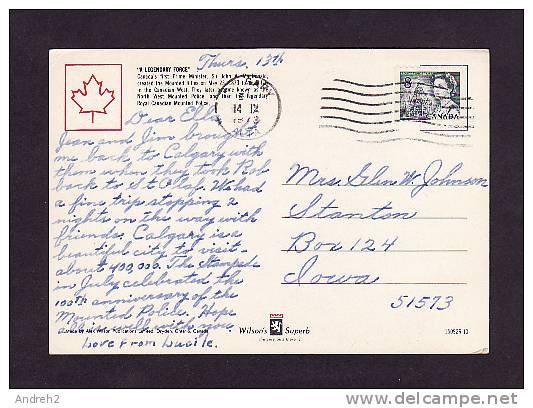 Thurs. 13th
"A LEGENDARY FORCE"
Canada's first Prime Minister, Sir John A. Macdonald,
created the Mounted Rifles on May 23, 1873
in the Canadian West. They later became known as
North West Mounted Police and then the legendary
Royal Canadian Mounted Police.
Dear Ella
Jean and Jim brought
me back to Calgary with
them when they took Rob
back to St Olaf. We had
a fine trip stopping 2
nights on the way with
friends. Calgary is a
beautiful city to visit -
about 400,000. The Stampede
in July celebrated the
100th anniversary of the
Mounted Police. Hope
all is well with you.
Love from Lucile.
14 IX
1973
8
CANADA
Mrs. Glen W. Johnson
Stanton
Box 124
Iowa
51573
Wilson's Superb
Andreh2